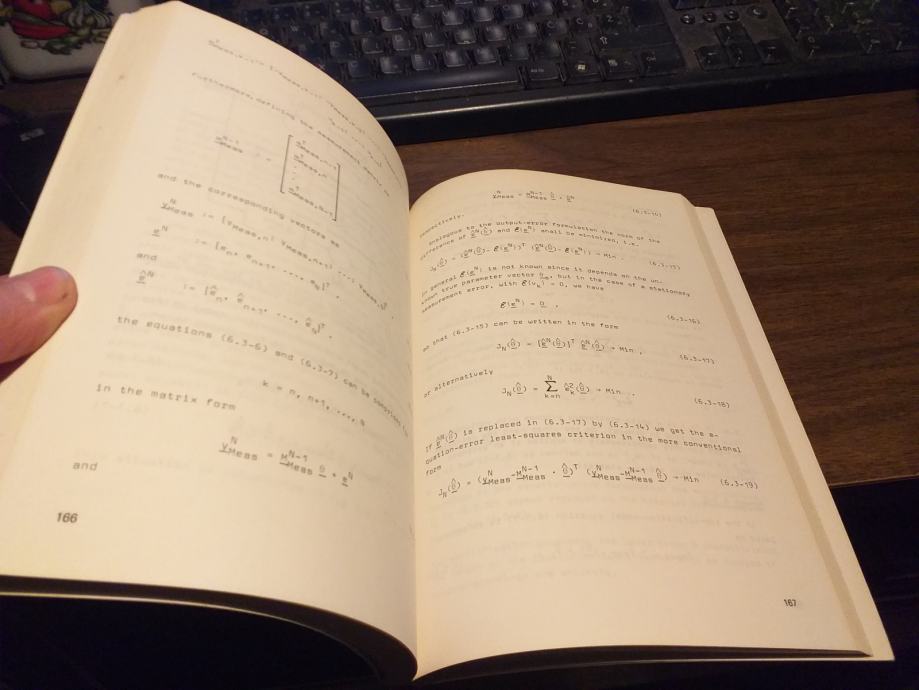 Furthermore, defining the measurement matrix as
and the corresponding vectors as
y^N_Meas := [y_Meas,n, y_Meas,n+1, ..., y_Meas,N]^T ,
e^N := [e_n, e_n+1, ..., e_N]^T ,
and
ê^N := [ê_n, ê_n+1, ..., ê_N]^T ,
the equations (6.3-6) and (6.3-7) can be
k = n, n+1, ..., N
in the matrix form
y^N_Meas = M^N-1_Meas θ + e^N
and
166
y^N_Meas = M^N-1_Meas θ̂ + ê^N (6.3-14)
respectively.
Analogous to the output-error formulation the norm of the
difference of ê^N(θ̂) and E(e^N) shall be minimized, i.e.
J_N(θ̂) = (ê^N(θ̂) - E(e^N))^T (ê^N(θ̂) - E(e^N)) → Min . (6.3-15)
In general E(e^N) is not known since it depends on the un-
known true parameter vector θ, but in the case of a stationary
measurement error, with E(v_k) = 0, we have
E(e^N) = 0 , (6.3-16)
so that (6.3-15) can be written in the form
J_N(θ̂) = [ê^N(θ̂)]^T ê^N(θ̂) → Min , (6.3-17)
or alternatively
J_N(θ̂) = Σ^N_k=n ê²_k(θ̂) → Min . (6.3-18)
If ê^N(θ̂) is replaced in (6.3-17) by (6.3-14) we get the e-
quation-error least-squares criterion in the more conventional
form
J_N(θ̂) = (y^N_Meas - M^N-1_Meas · θ̂)^T (y^N_Meas - M^N-1_Meas θ̂) → Min (6.3-19)
167